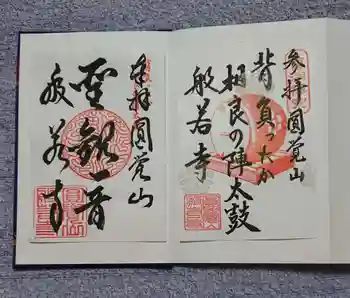 参拝 圓覚山
背負ったか
相良の陣太鼓
般若寺
奉拝 圓覚山
聖観音
般若寺